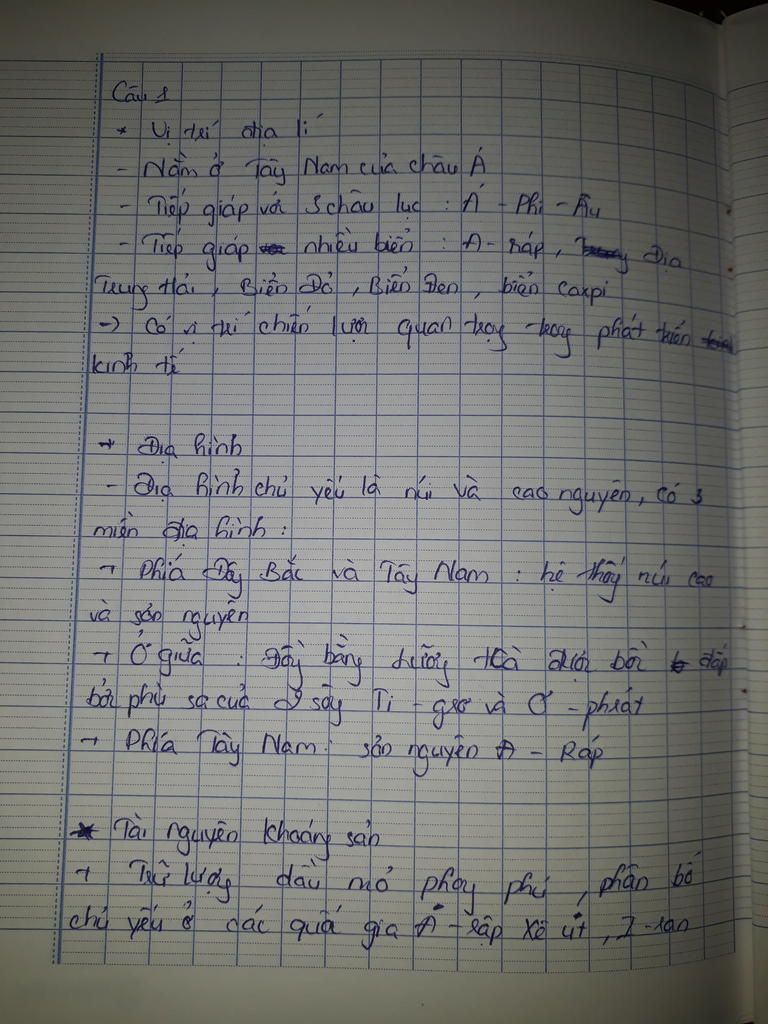 Câu 1
* Vị trí địa lí
- Nằm ở Tây Nam của châu Á
- Tiếp giáp với 3 châu lục : Á - Phi - Âu
- Tiếp giáp nhiều biển : A - ráp, Địa
Trung Hải, Biển Đỏ, Biển Đen, biển caxpi
-> Có vị trí chiến lược quan trọng trong phát triển
kinh tế
+ Địa hình
- Địa hình chủ yếu là núi và cao nguyên, có 3
miền địa hình :
+ Phía Đông Bắc và Tây Nam : hệ thống núi cao
và sơn nguyên
+ Ở giữa : Đồng bằng Lưỡng Hà được bồi đắp
bởi phù sa của sông Ti - grơ và Ơ - phrát
+ Phía Tây Nam : sơn nguyên A - Ráp
* Tài nguyên khoáng sản
+ Trữ lượng dầu mỏ phong phú, phân bố
chủ yếu ở các quốc gia Ả - rập Xê út, I - ran